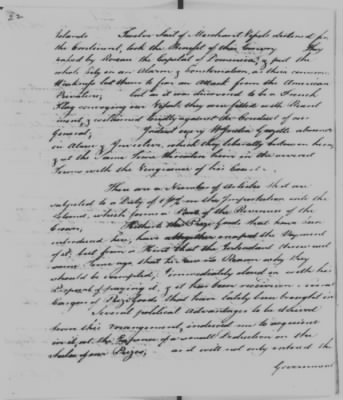 32
Islands Twelve Sail of Merchant Vessels destined for
the Continent, took the Benefit of their Convoy They
sailed by Roseau the Capital of Dominica, & put the
whole City in an Alarm & Consternation, as their conscious
Weakness led them to fear an Attack from the American
Privateers; but as it was discovered to be a French
Flag conveying our Vessels they are filled with Resent
ment, & exclaimed loudly against the Conduct of our
General; Indeed every Dominica Gazette
an Alarm & Invective, which they liberally bestow on him,
& at the Same Time threaten him in the
Terms with the Vengeance of his Court.
There are a Number of Articles that are
subjected to a Duty of 1 PCt on the Importation into the
Island, which forms a Part of the Revenues of the
Crown, the Prize Goods that have been
introduced here, have the Payment
of it; but from a Hint that the Intendant
some Time ago, that he saw no Reason why they
should be exempted, I immediately closed in with his
Proposal of paying it, & it has been received on several
Cargoes of Prize Goods that have lately been brought in
Several political Advantages to be derived
from this Arrangement, induced me to acquiesce
in it, at the Expence of a small Deduction on the
Sales of our Prizes, as it will not only extend the
Government